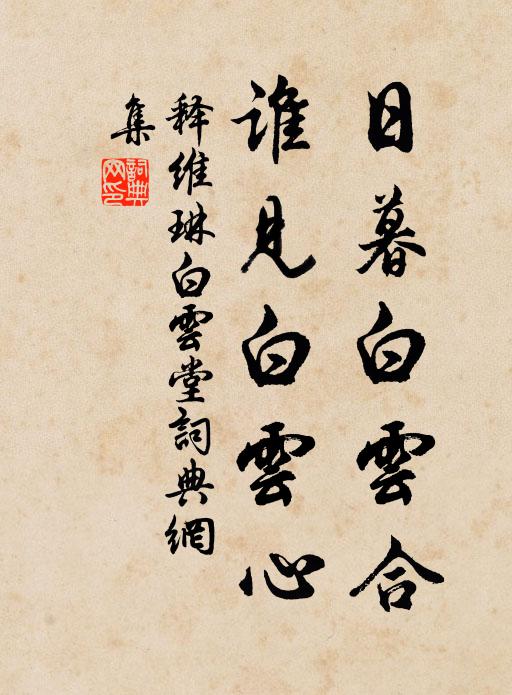 日暮白雲合
誰見白雲心
释維琳白雲堂詞典網
集
詞典网印